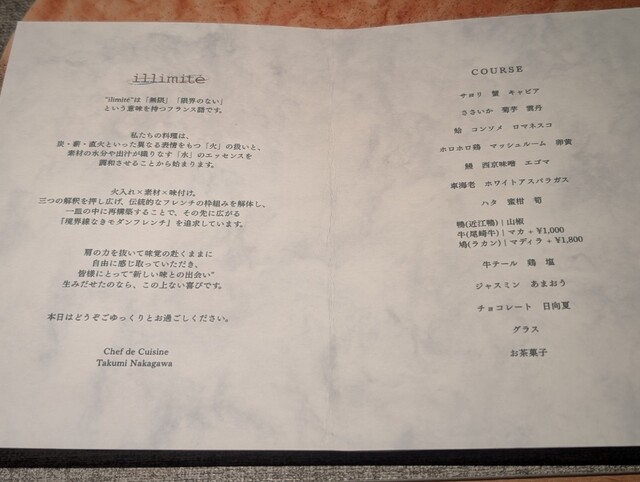 illimité
"illimité"は「無限」「限界のない」
という意味を持つフランス語です。
私たちの料理は、
炭・薪・直火といった異なる表情をもつ「火」の扱いと、
素材の水分や出汁が織りなす「水」のエッセンスを
調和させることから始まります。
火入れ×素材×味付け。
三つの解釈を押し広げ、伝統的なフレンチの枠組みを解体し、
一皿の中に再構築することで、その先に広がる
『境界線なきモダンフレンチ』を追求しています。
肩の力を抜いて味覚の赴くままに
自由に感じ取っていただき、
皆様にとって"新しい味との出会い"
生みだせたのなら、この上ない喜びです。
本日はどうぞごゆっくりとお過ごしください。
Chef de Cuisine
Takumi Nakagawa
COURSE
サヨリ 蟹 キャビア
ささいか 菊芋 雲丹
蛤 コンソメ ロマネスコ
ホロホロ鶏 マッシュルーム 卵黄
西京味噌 エゴマ
車海老 ホワイトアスパラガス
ハタ 蜜柑 筍
鴨(近江鴨) | 山椒
牛(尾崎牛) | マカ + ¥1,000
鳩(ラカン) | マディラ + ¥1,800
牛テール 鶏 塩
ジャスミン あまおう
チョコレート 日向夏
グラス
お茶菓子